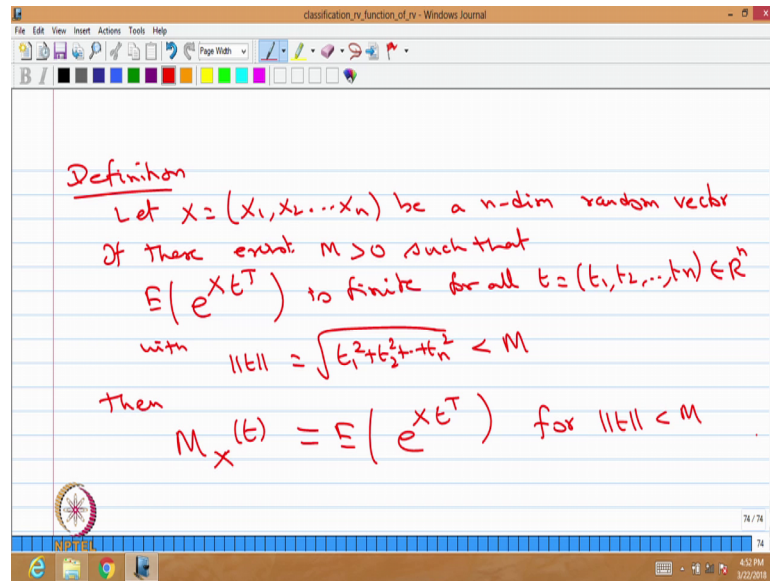 classification_rv_function_of_rv - Windows Journal
File Edit View Insert Actions Tools Help
Page Width
B I
Definition
Let X = (X₁, X₂ ... Xₙ) be a n-dim random vector
If there exist M > 0 such that
E(e^{Xt^T}) is finite for all t = (t₁, t₂, .., tₙ) ∈ Rⁿ
with ||t|| = √(t₁² + t₂² + .. + tₙ²) < M
then
M_X(t) = E(e^{Xt^T}) for ||t|| < M
NPTEL
74 / 74
74
4:52 PM
3/22/2018